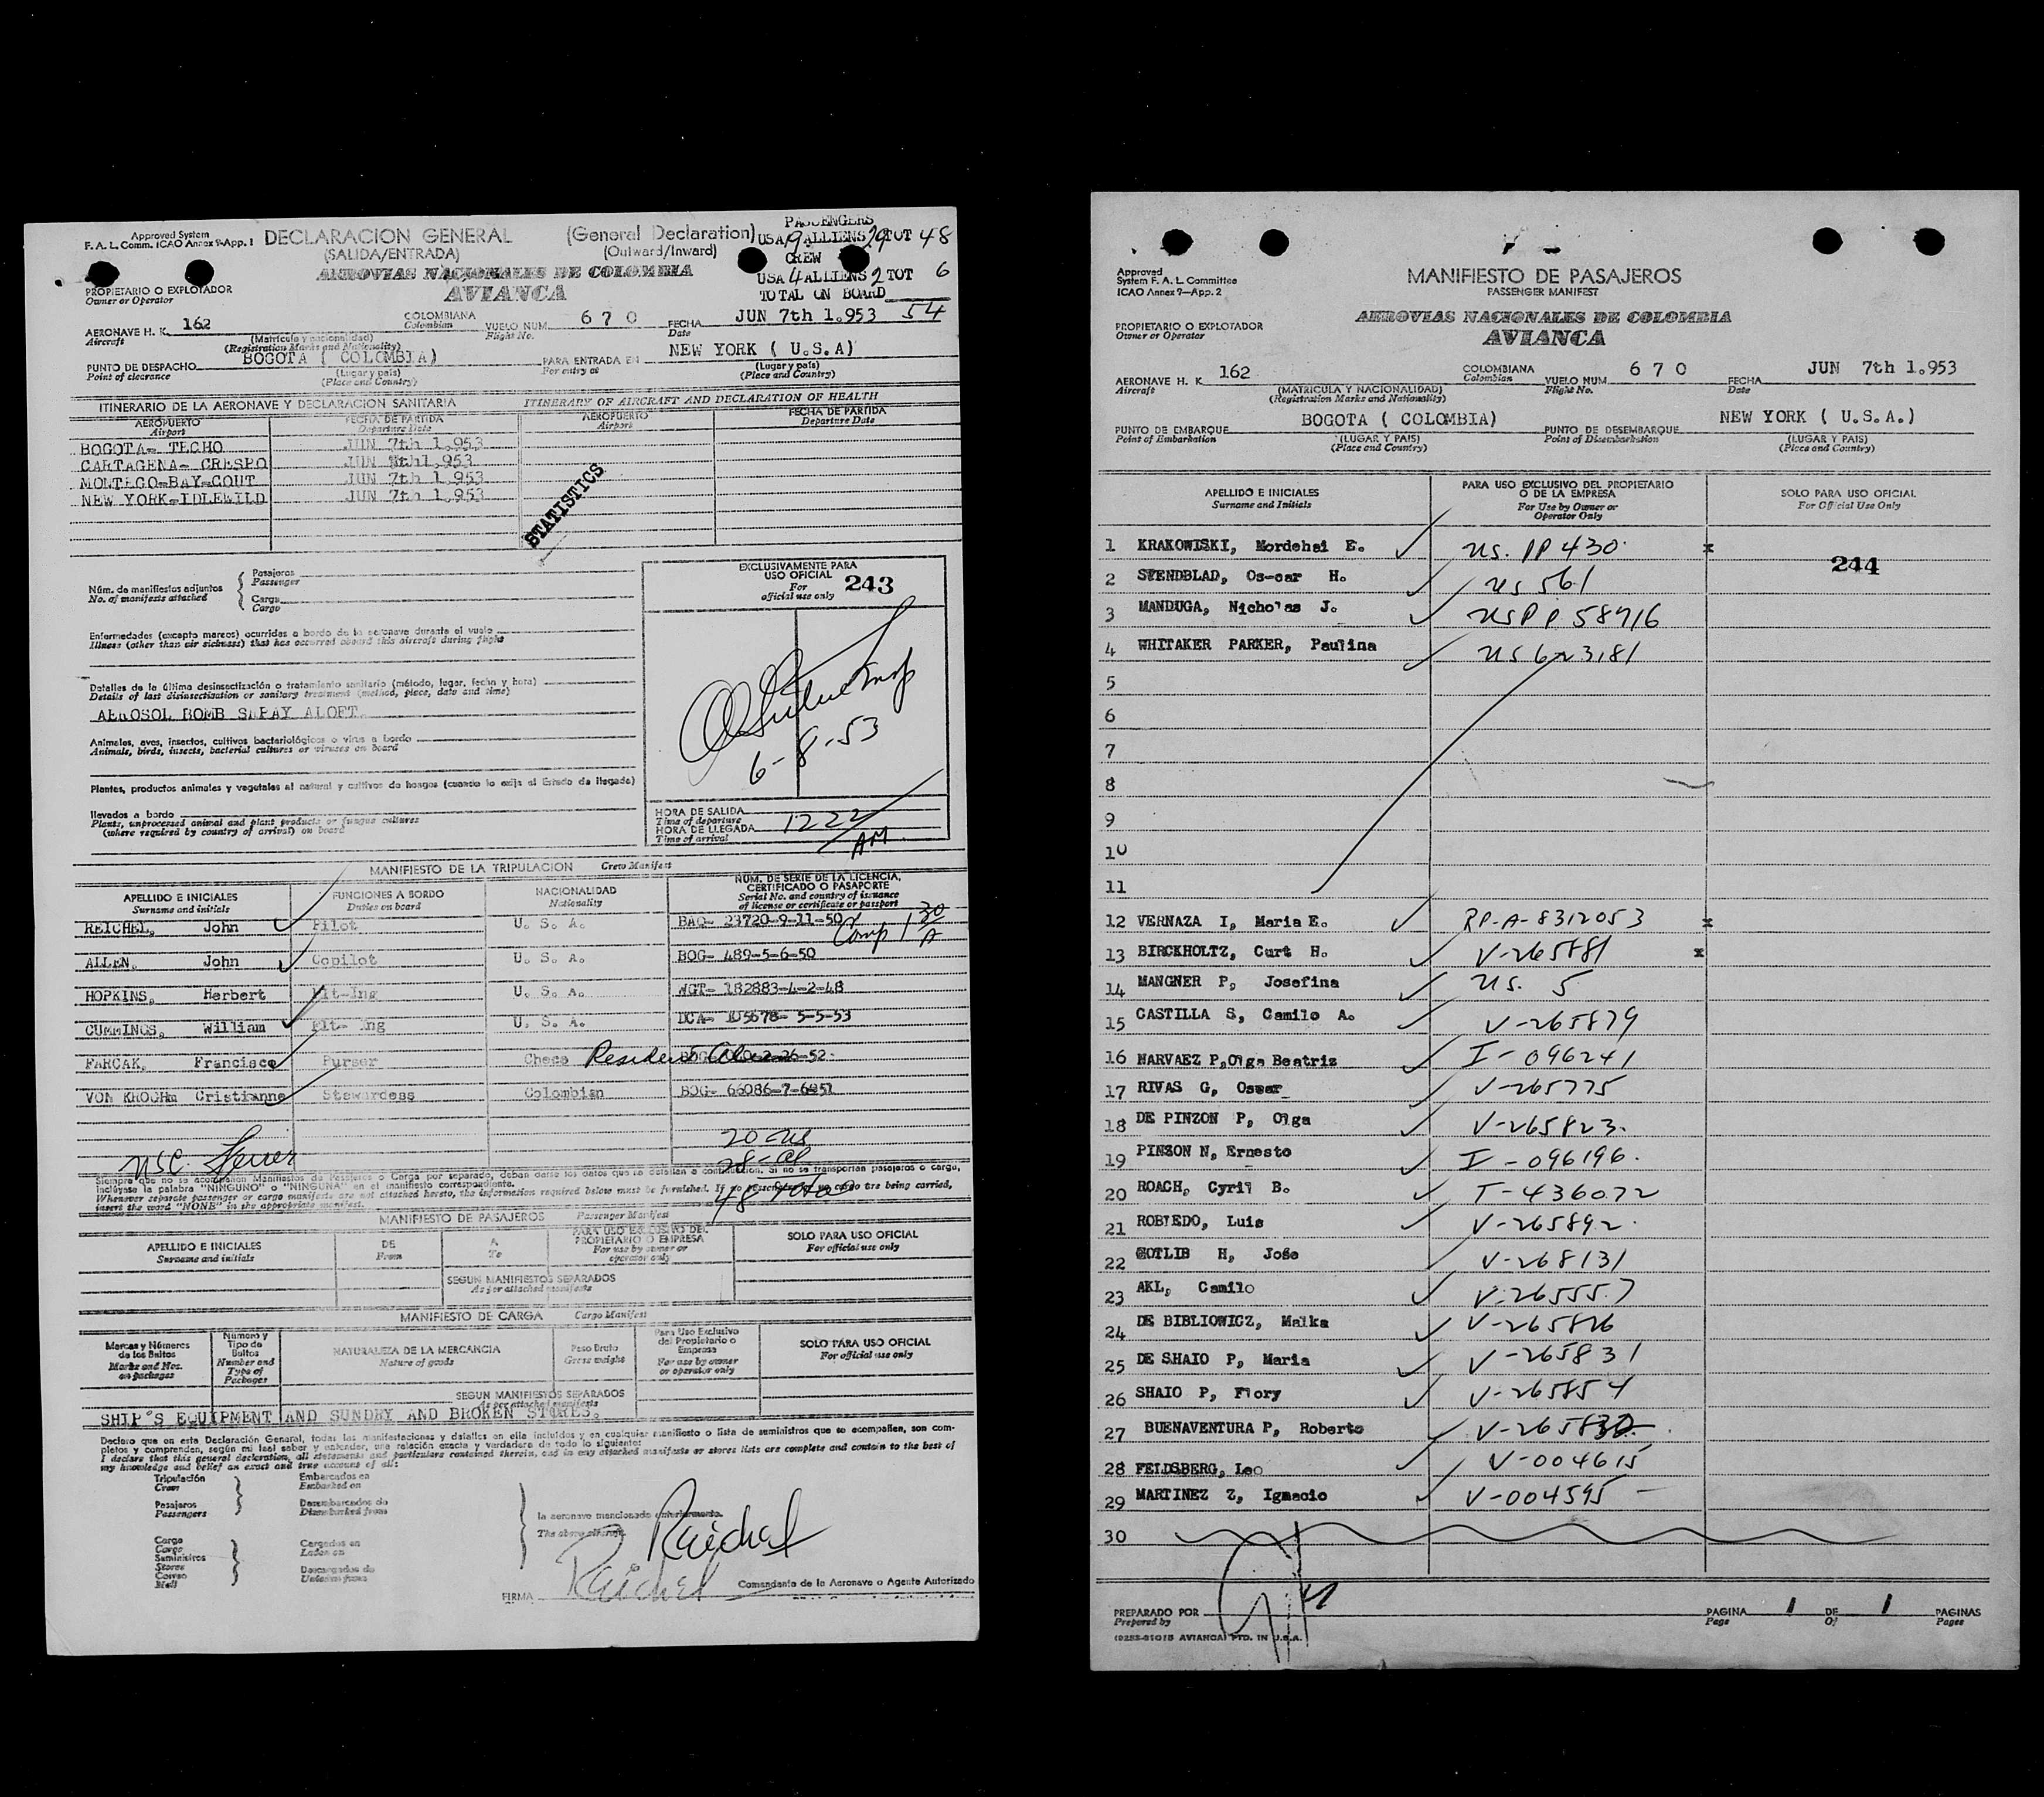 Approved System
F. A. L. Comm. ICAO Annex 9-App. 1
DECLARACION GENERAL (General Declaration)
(SALIDA/ENTRADA) (Outward/Inward)
PASSENGERS
USA 19 ALLIENS 29 TOT 48
CREW
USA 4 ALLIENS 2 TOT 6
TOTAL ON BOARD 54
AEROVIAS NACIONALES DE COLOMBIA
AVIANCA
PROPIETARIO O EXPLOTADOR
Owner or Operator
AERONAVE H. K. 162 COLOMBIANA VUELO NUM. 6 7 0 FECHA JUN 7th 1.953
Aircraft Colombian Flight No. Date
(Matrícula y nacionalidad)
(Registration Marks and Nationality)
PUNTO DE DESPACHO BOGOTA ( COLOMBIA) PARA ENTRADA EN NEW YORK ( U.S.A)
Point of clearance For entry at
(Lugar y país) (Lugar y país)
(Place and Country) (Place and Country)
ITINERARIO DE LA AERONAVE Y DECLARACION SANITARIA ITINERARY OF AIRCRAFT AND DECLARATION OF HEALTH
AEROPUERTO FECHA DE PARTIDA AEROPUERTO FECHA DE PARTIDA
Airport Departure Date Airport Departure Date
BOGOTA- TECHO JUN 7th 1.953
CARTAGENA- CRESPO JUN 1.953
MOLTEGO-BAY-COUT JUN 7th 1.953
NEW YORK-IDLEWILD JUN 7th 1.953
STATISTICS
Núm. de manifiestos adjuntos
No. of manifests attached
Pasajeros
Passenger
Carga
Cargo
EXCLUSIVAMENTE PARA
USO OFICIAL
For
official use only
243
Enfermedades (excepto mareos) ocurridas a bordo de la aeronave durante el vuelo
Illness (other than air sickness) that has occurred aboard this aircraft during flight
Detalles de la última desinsectización o tratamiento sanitario (método, lugar, fecha y hora)
Details of last disinsectization or sanitary treatment (method, place, date and time)
AEROSOL BOMB SAPAY ALOFT.
6-8-53
Animales, aves, insectos, cultivos bacteriológicos o virus a bordo
Animals, birds, insects, bacterial cultures or viruses on board
Plantes, productos animales y vegetales al natural y cultivos de hongos (cuando lo exija el Estado de llegada)
llevados a bordo
Plants, unprocessed animal and plant products or fungus cultures
(where required by country of arrival) on board
HORA DE SALIDA
Time of departure
HORA DE LLEGADA 1222 AM
Time of arrival
MANIFIESTO DE LA TRIPULACION Crew Manifest
APELLIDO E INICIALES FUNCIONES A BORDO NACIONALIDAD NUM. DE SERIE DE LA LICENCIA, CERTIFICADO O PASAPORTE
Surname and initials Duties on board Nationality Serial No. and country of issuance of license or certificate or passport
REICHEL, John Pilot U. S. A. BAQ- 23720-9-11-50
Comp 1 30 A
ALLEN, John Copilot U. S. A. BOG- 489-5-6-50
HOPKINS, Herbert Flt-Ing U. S. A. WGT- 182883-4-2-48
CUMMINGS, William Flt- Ing U. S. A. DCA- 5-5-53
FARCAK, Francisco Purser Checa Resident
VON KROGHm Cristianne Stewardess Colombian BOG- 66086-7-6951
20 = us
28 = al
48 Total
Siempre que no se acompañen Manifiestos de Pasajeros o Carga por separado, deban darse los datos que se detallan a continuación. Si no se transportan pasajeros o carga,
inclúyase la palabra "NINGUNO" o "NINGUNA" en el manifiesto correspondiente.
Whenever separate passenger or cargo manifests are not attached hereto, the information required below must be furnished. If no passengers or no cargo are being carried,
insert the word "NONE" in the appropriate manifest.
MANIFIESTO DE PASAJEROS Passenger Manifest
APELLIDO E INICIALES DE A PARA USO EXCLUSIVO DEL PROPIETARIO O EMPRESA SOLO PARA USO OFICIAL
Surname and initials From To For use by owner or operator only For official use only
SEGUN MANIFIESTOS SEPARADOS
As per attached manifests
MANIFIESTO DE CARGA Cargo Manifest
Marcas y Números de los Bultos Número y Tipo de Bultos NATURALEZA DE LA MERCANCIA Peso Bruto Para Uso Exclusivo del Propietario o Empresa SOLO PARA USO OFICIAL
Marks and Nos. on packages Number and Type of Packages Nature of goods Gross weight For use by owner or operator only For official use only
SEGUN MANIFIESTOS SEPARADOS
As per attached manifests
SHIP'S EQUIPMENT AND SUNDRY AND BROKEN STORES.
Declaro que en esta Declaración General, todas las manifestaciones y detalles en ella incluídos y en cualquier manifiesto o lista de suministros que se acompañen, son com-
pletos y comprenden, según mi leal saber y entender, una relación exacta y verdadera de todo lo siguiente:
I declare that this general declaration, all statements and particulars contained therein, and in any attached manifests or stores lists are complete and contain to the best of
my knowledge and belief an exact and true account of all:
Tripulación Embarcados en
Crew Embarked on
Pasajeros Desembarcados de
Passengers Disembarked from
la aeronave mencionada anteriormente.
The above aircraft.
Reichel
Carga Cargados en
Cargo Laden on
Suministros
Stores Descargados de
Correo Unladen from
Mail
Reichel
Comandante de la Aeronave o Agente Autorizado
FIRMA
Approved
System F. A. L. Committee
ICAO Annex 9—App. 2
MANIFIESTO DE PASAJEROS
PASSENGER MANIFEST
AEROVIAS NACIONALES DE COLOMBIA
AVIANCA
PROPIETARIO O EXPLOTADOR
Owner or Operator
AERONAVE H. K 162 COLOMBIANA VUELO NUM. 6 7 0 FECHA JUN 7th 1.953
Aircraft Colombian Flight No. Date
(MATRICULA Y NACIONALIDAD)
(Registration Marks and Nationality)
PUNTO DE EMBARQUE BOGOTA ( COLOMBIA) PUNTO DE DESEMBARQUE NEW YORK ( U.S.A.)
Point of Embarkation Point of Disembarkation
(LUGAR Y PAIS) (LUGAR Y PAIS)
(Place and Country) (Place and Country)
APELLIDO E INICIALES PARA USO EXCLUSIVO DEL PROPIETARIO O DE LA EMPRESA SOLO PARA USO OFICIAL
Surname and Initials For Use by Owner or Operator Only For Official Use Only
1 KRAKOWISKI, Mordehai E. US. PP 430 x
244
2 SVENDBLAD, Os-car H. US 561
3 MANDUGA, Nicholas J. US PP 58716
4 WHITAKER PARKER, Paulina US 623181
5
6
7
8
9
10
11
12 VERNAZA I, Maria E. RP-A-8312053 x
13 BIRCKHOLTZ, Curt H. V-265881 x
14 MANGNER P, Josefina US. 5
15 CASTILLA S, Camilo A. V-265879
16 NARVAEZ P,Olga Beatriz I-096241
17 RIVAS G, Oscar V-265775
18 DE PINZON P, Olga V-265823.
19 PINZON N, Ernesto I-096196.
20 ROACH, Cyril B. T-436072
21 ROBLEDO, Luis V-265892.
22 GOTLIB H, José V-268131
23 AKL, Camilo V-265557
24 DE BIBLIOWICZ, Malka V-265826
25 DE SHAIO P, Maria V-265831
26 SHAIO P, Flory V-265854
27 BUENAVENTURA P, Roberto V-265830
28 FELDSBERG, Leo V-004615
29 MARTINEZ Z, Ignacio V-004595
30
PREPARADO POR
Prepared by
PAGINA 1 DE 1 PAGINAS
Page Of Pages
AVIANCA) PTD. IN U.S.A.